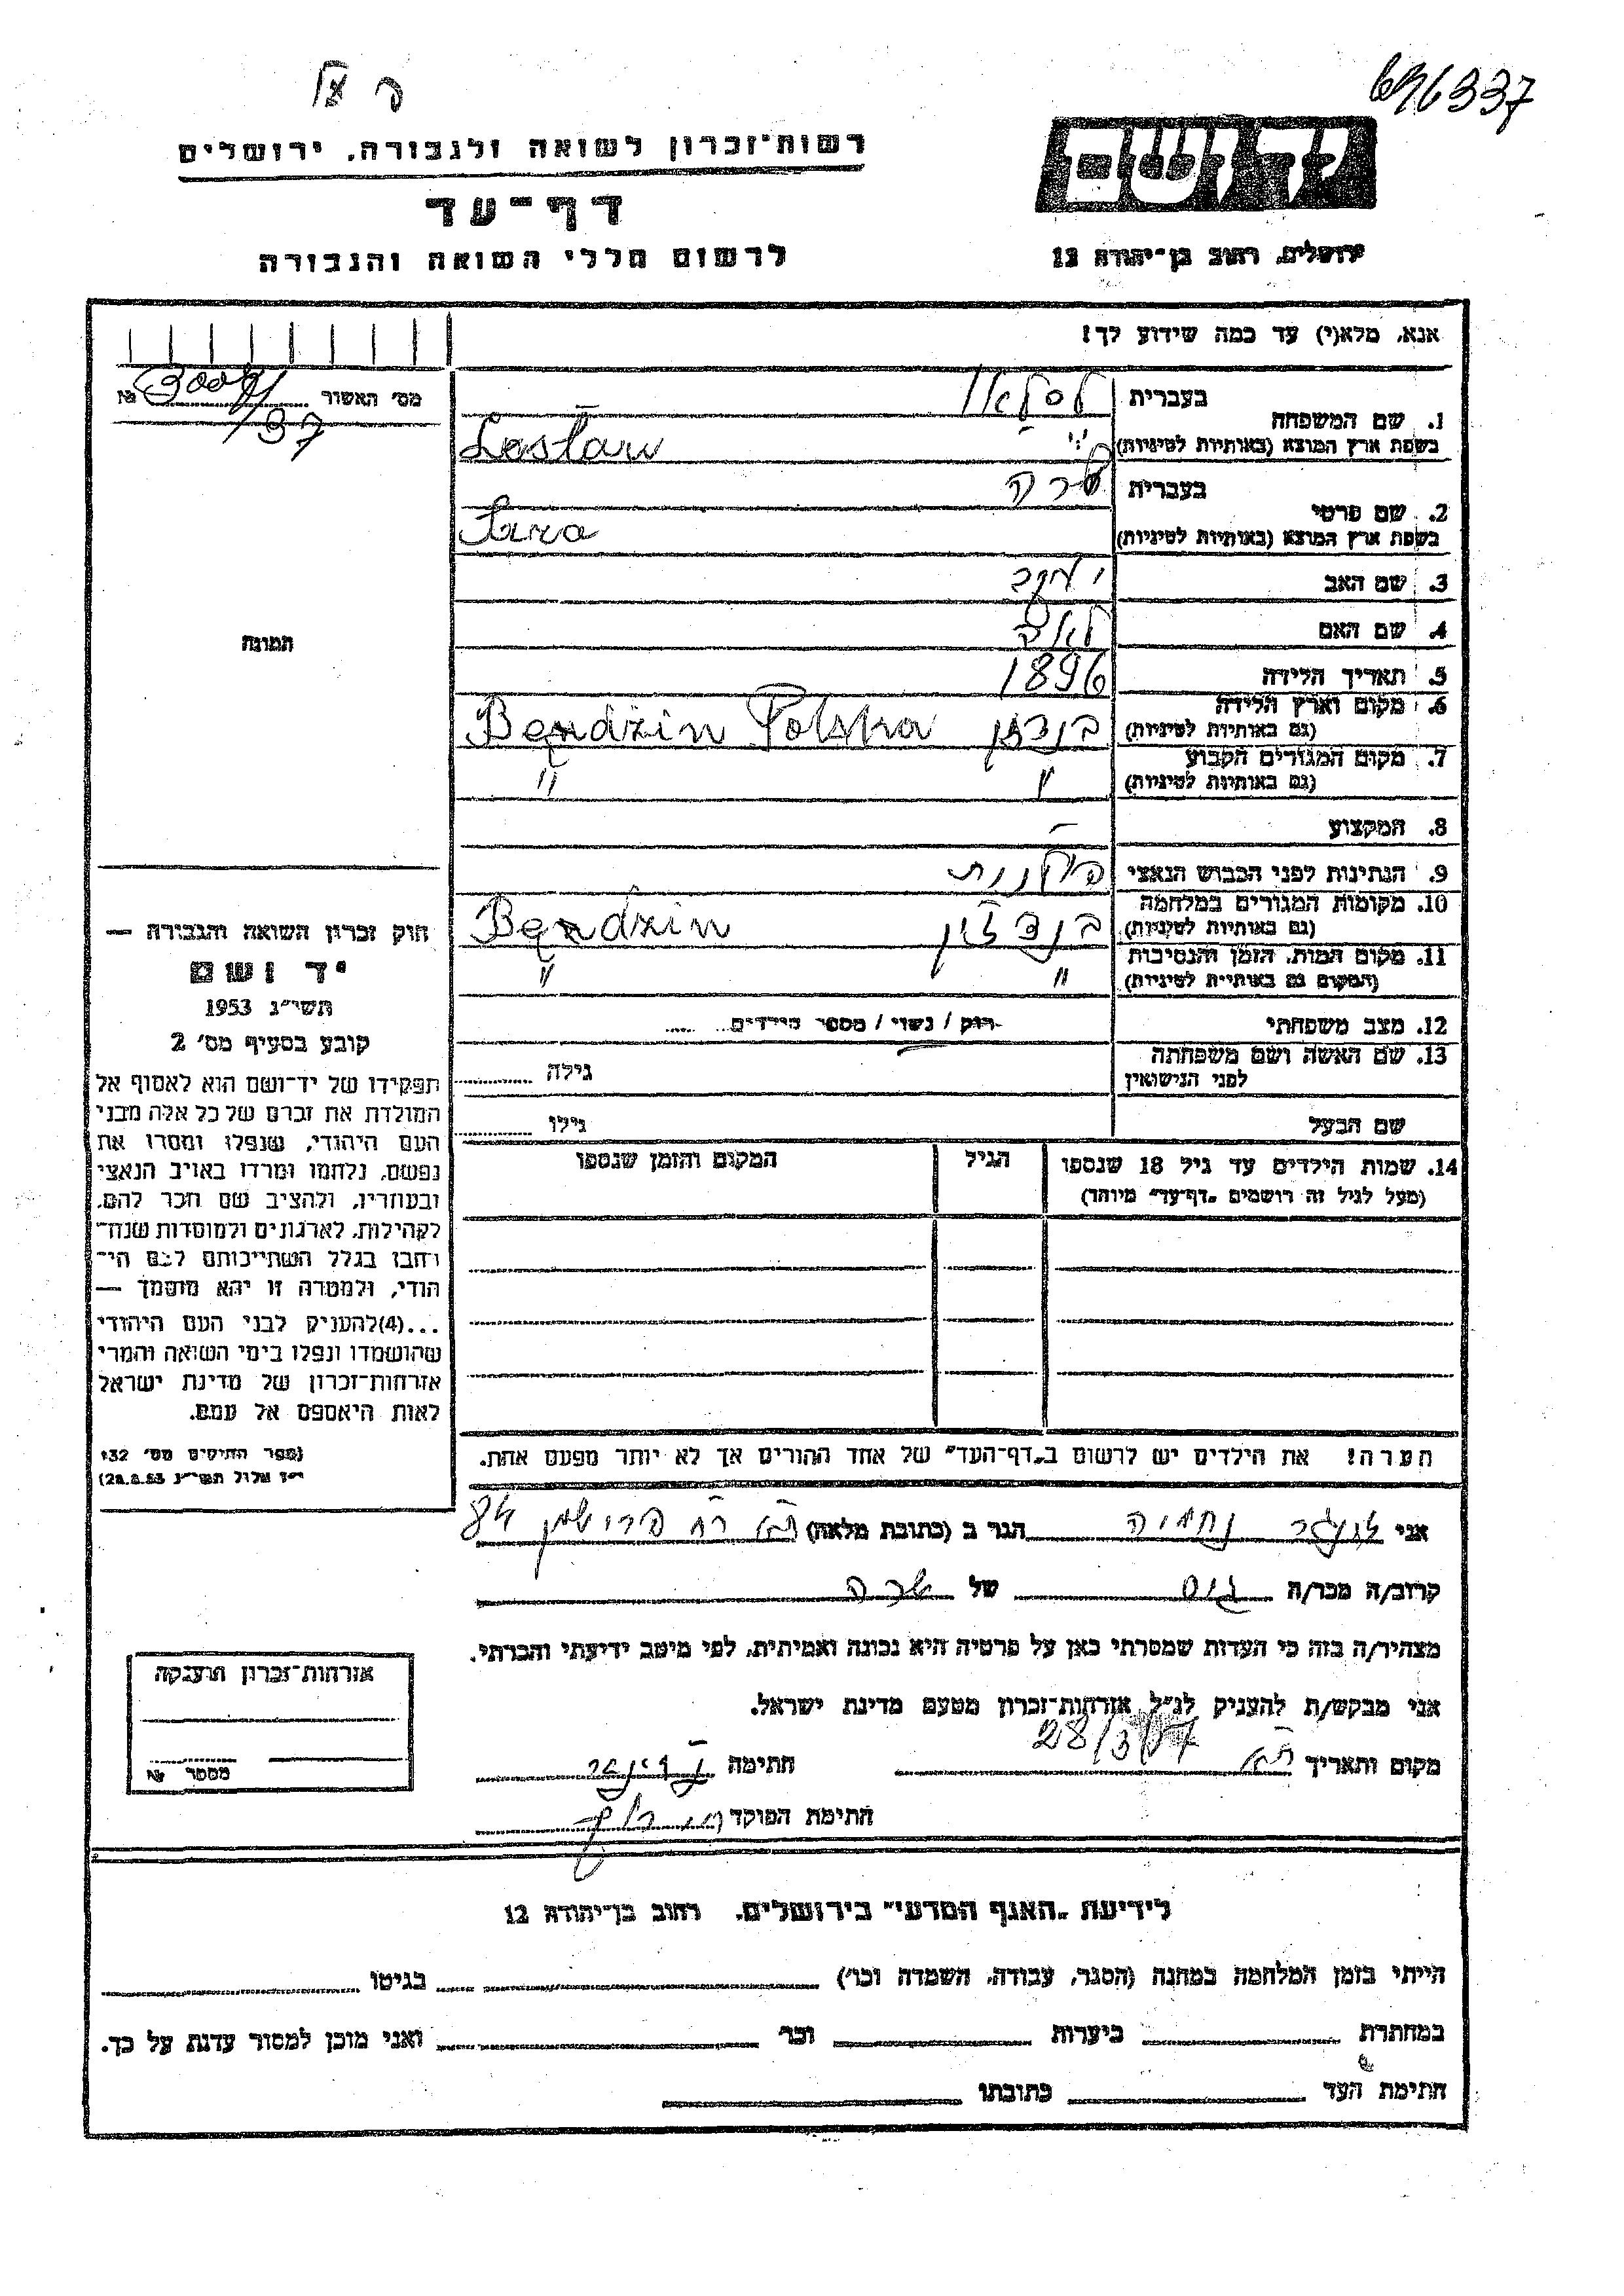 696337
רשות־זכרון לשואה ולגבורה, ירושלים
דף־עד
לרשום חללי השואה והגבורה
ירושלים, רחוב בן־יהודה 12
אנא, מלא(י) עד כמה שידוע לך!
מס׳ האשור № /37
1. שם המשפחה בעברית
בשפת ארץ המוצא (באותיות לטיניות) Lastaw
2. שם פרטי בעברית שרה
בשפת ארץ המוצא (באותיות לטיניות) Sara
3. שם האב יעקב
4. שם האם לאה
5. תאריך הלידה 1896
6. מקום וארץ הלידה
(גם באותיות לטיניות) בנדזין Bendzin Polska
7. מקום המגורים הקבוע
(גם באותיות לטיניות) " "
8. המקצוע –
9. הנתינות לפני הכבוש הנאצי פולנית
10. מקומות המגורים במלחמה
(גם באותיות לטיניות) בנדזין Bendzin
11. מקום המות, הזמן והנסיבות
(המקום גם באותיות לטיניות) " "
12. מצב משפחתי רווק / נשוי / מספר הילדים
13. שם האשה ושם משפחתה
לפני הנישואין גילה
שם הבעל גילו
14. שמות הילדים עד גיל 18 שנספו הגיל המקום והזמן שנספו
(מעל לגיל זה רושמים „דף־עד" מיוחד)
הערה! את הילדים יש לרשום ב„דף־העד" של אחד ההורים אך לא יותר מפעם אחת.
תמונה
חוק זכרון השואה והגבורה —
יד ושם
תשי״ג 1953
קובע בסעיף מס׳ 2
תפקידו של יד־ושם הוא לאסוף אל
המולדת את זכרם של כל אלה מבני
העם היהודי, שנפלו ומסרו את
נפשם, נלחמו ומרדו באויב הנאצי
ובעוזריו, ולהציב שם וזכר להם,
לקהילות, לארגונים ולמוסדות שנח־
רבו בגלל השתייכותם לעם הי־
הודי, ולמטרה זו יהא מוסמך —
...(4)להעניק לבני העם היהודי
שהושמדו ונפלו בימי השואה והמרי
אזרחות־זכרון של מדינת ישראל
לאות היאספם אל עמם.
(ספר החוקים מס׳ 132
י״ז אלול תשי״ג 28.8.53)
אני נחמיה הגר ב (כתובת מלאה) 84
קרוב/ה מכר/ה גיס של שרה
מצהיר/ה בזה כי העדות שמסרתי כאן על פרטיה היא נכונה ואמיתית, לפי מיטב ידיעתי והכרתי.
אני מבקש/ת להעניק לנ״ל אזרחות־זכרון מטעם מדינת ישראל.
מקום ותאריך 28/3/57 חתימה
חתימת הפוקד
אזרחות־זכרון הוענקה
מספר №
לידיעת „האגף המדעי" בירושלים, רחוב בן־יהודה 12
הייתי בזמן המלחמה במחנה (הסגר, עבודה, השמדה וכו׳) בגיטו
במחתרת ביערות וכו׳ ואני מוכן למסור עדות על כך.
חתימת העד כתובתו